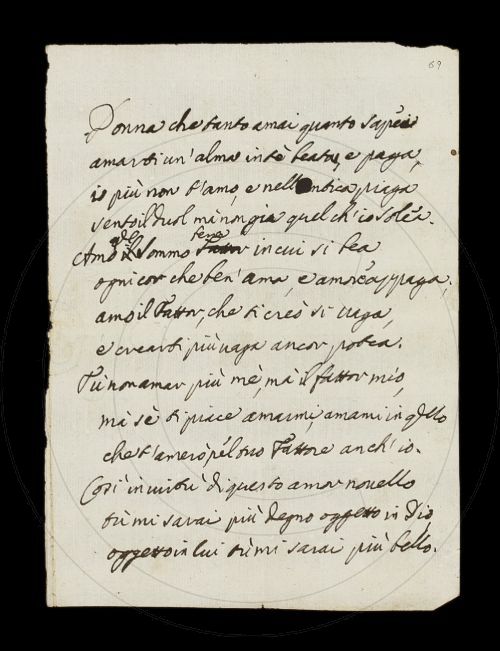 69
Donna che tanto amai quanto sapéa
amarti un'alma in tè beata, e paga,
io più non t'amo, e nell'antica piaga
sento il duol mà non già quel ch'io soléa.
bene
Amo il Sommo Fattor in cui si bea
ogni cor che ben'ama, e amor s'appaga,
amo il Fattor, che ti creò sì vaga,
e crearti più vaga ancor potea.
Tù non amar più mè, mà il fattor mio,
mà sè ti piace amarmi, amami in q.llo
che t'amerò pél tuo Fattore anch'io.
Così in virtù di questo amor novello
tù mi sarai più degno oggetto in Dio
oggetto in lui tù mi sarai più bello.